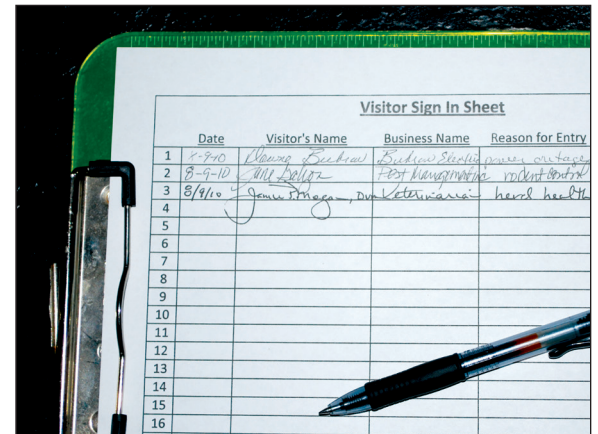 Visitor Sign In Sheet
Date Visitor's Name Business Name Reason for Entry
1 8-9-10 Budrow Budrow Electric power outage
2 8-9-10 Jane Pest Management Inc rodent control
3 8/9/10 James Dvm Veterinarian herd health
4
5
6
7
8
9
10
11
12
13
14
15
16